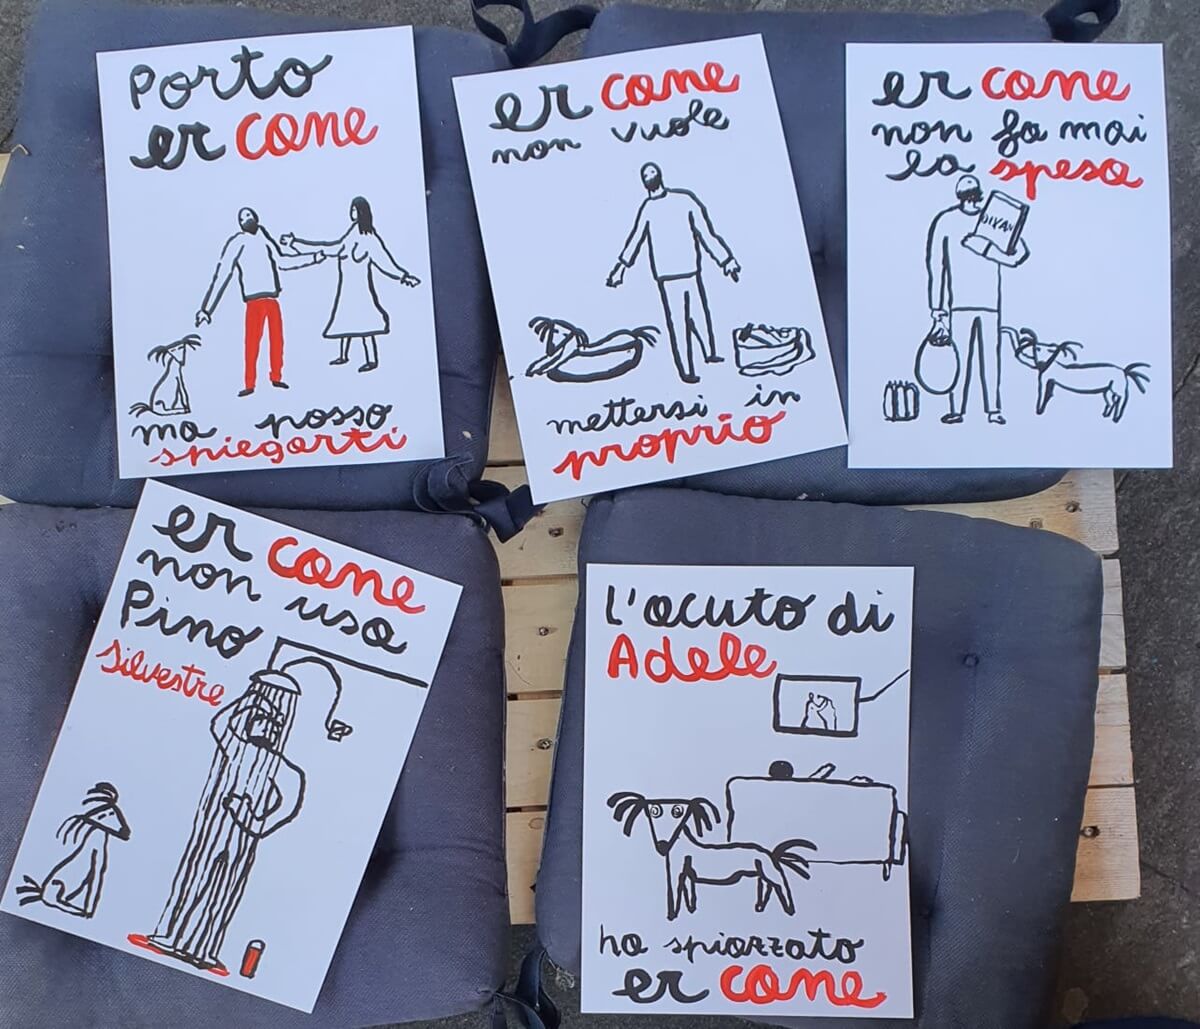 Porto
er cane
ma posso
spiegarti
er cane
non vuole
mettersi in
proprio
er cane
non fa mai
la spesa
DIXAN
er cane
non usa
Pino
Silvestre
L'acuto di
Adele
ha spiazzato
er cane